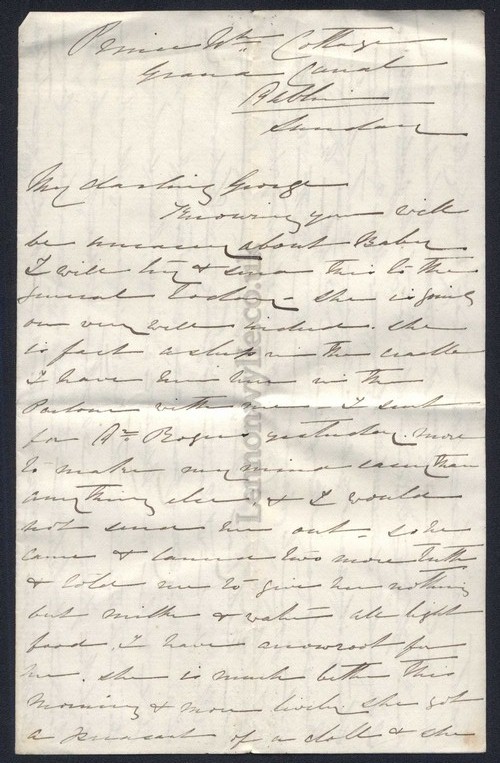 Prince Wm Cottage
Grand Canal
Dublin
Sunday
My darling George
Knowing you will
be uneasy about Baby
I will try & send this to the
General today - she is going
on very well indeed. she
is fast asleep in the cradle
I have her in the
Parlour with me - I sent
for Dr Rogers yesterday more
to make my mind easy than
anything else & I would
not send her out - so he
came & lanced two more teeth
& told me to give her nothing
but milk & water all light
food. I have arrowroot for
her. she is much better this
morning & more lively she got
a present of a doll & she
Lennonwylie.co.uk